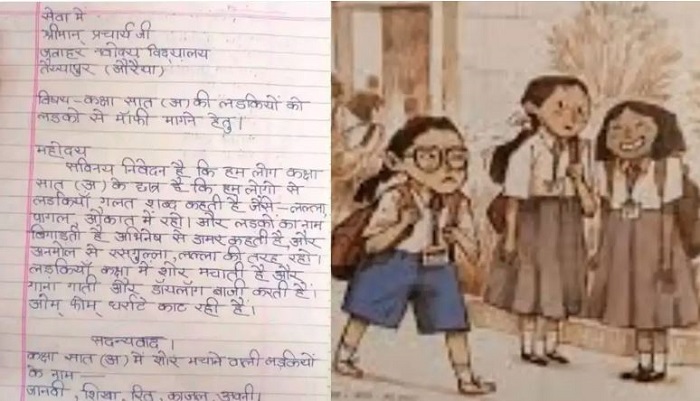 सेवा में
श्रीमान प्रचार्य जी
जवाहर नवोदय विद्यालय
तैय्यापुर (औरैया)
विषय - कक्षा सात (अ) की लडकियों को
लडको से माफी मागने हेतु।
महोदय
सविनय निवेदन है कि हम लोग कक्षा
सात (अ) के छात्र है कि हम लोगो से
लडकियाँ गलत शब्द कहती है जैसे - लल्ला,
पागल, औकात में रहो। और लडको का नाम
बिगाडती है अभिनेष से डामर कहती है, और
अनमोल से रसगुल्ला, लल्ला की तरह रहो।
लडकियाँ कक्षा में शोर मचाती है और
गाना गाती और डॉयलॉग बाजी करती है।
ओम् फोम् धर्राटे काट रही है।
सदन्यवाद।
कक्षा सात (अ) में शोर मचाने वाली लडकियों
के नाम —
जानवी, शिखा, रित, काजल,